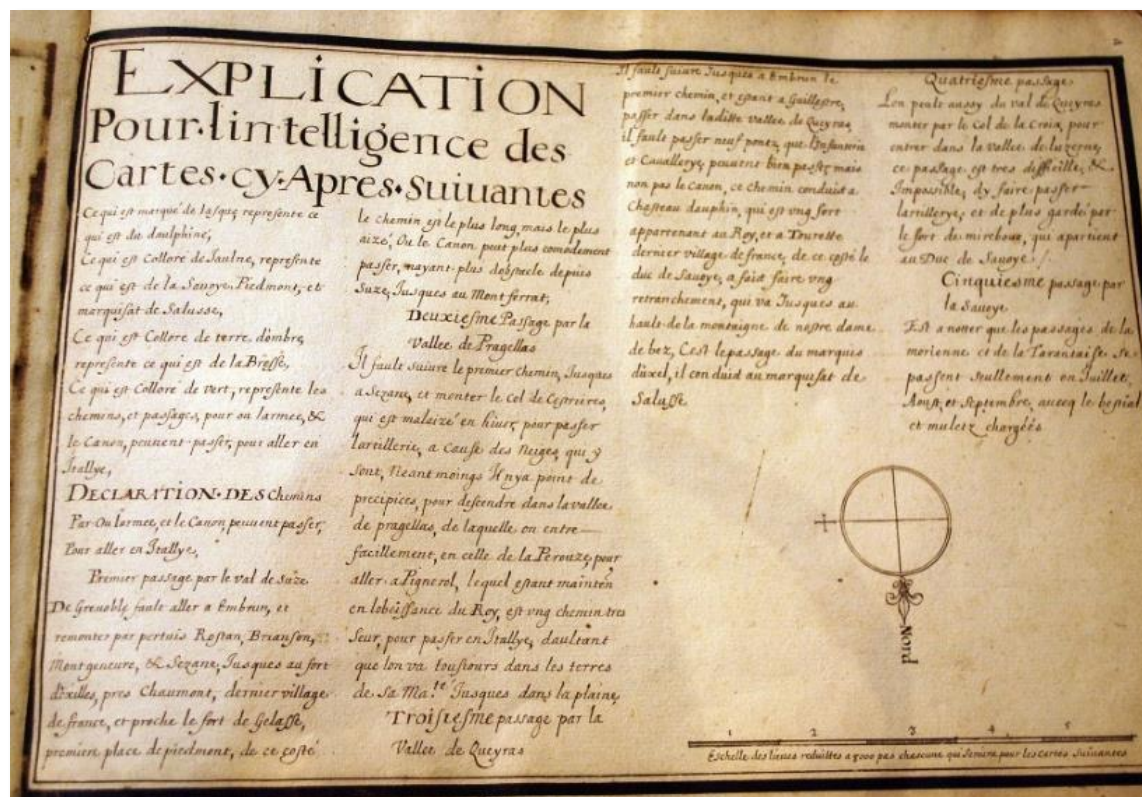 EXPLICATION
Pour·lintelligence des
Cartes·cy·Apres·Suiuantes
Ce qui est marqué de lasque represente ce
qui est du daulphine,
Ce qui est Collore de Jaulne, represente
ce qui est de la Sauoye Piedmont, et
marquisat de Salusse,
Ce qui est Collore de terre dombre
represente ce qui est de la Bresse,
Ce qui est Collore de vert, represente les
chemins, et passages, pour ou larmee, &
le Canon, peuuent passer, pour aller en
Itallye,
DECLARATION·DES Chemins
Par Ou larmee, et le Canon, peuuent passer,
Pour aller en Itallye,
Premier passage par le val de Suze
De Grenoble fault aller a Embrun, et
remonter par pertuis Rostan, Brianson,
Mont geneure, & Sezane, Jusques au fort
dexilles, pres Chaumont, dernier village
de france, et proche le fort de Gelasse,
premiere place de piedmont, de ce costé
le chemin est le plus long, mais le plus
aizé, Ou le Canon peut plus comodement
passer, nayant plus dobstacle depuis
Suze, Jusques au Montferrat,
Deuxiesme Passage par la
Vallee de Pragellas
Il fault suiure le premier chemin, Jusques
a Sezane, et monter le Col de Cestrieres,
qui est malaizé en hiuer, pour passer
lartillerie, a Cause des Neiges, qui y
sont, Neantmoings Il nya point de
precipices, pour descendre dans la vallee
de pragellas, de laquelle on entre
facillement, en celle de la Perouze, pour
aller a Pignerol, lequel estant mainten
en lobeissance du Roy, est vng chemin tres
Seur, pour passer en Itallye, daultant
que lon va tousiours dans les terres
de Sa Ma.té Jusques dans la plaine,
Troisiesme passage par la
Vallee de Queyras
Il fault suiure Jusques a Embrun le
premier chemin, et estant a Guillestre,
passer dans laditte vallee de Queyras
il fault passer neuf pontz, que lInfanterie
et Cauallerye peuuent bien passer mais
non pas le Canon, ce chemin conduid a
Chasteau dauphin, qui est vng fort
appartenant au Roy, et a Tourette
dernier village de france, de ce costé le
duc de Sauoye, a faid faire vng
retranchement, qui va Jusques au
hault de la montaigne de nostre dame
de bez, Cest le passage du marquis
duxel, il conduid au marquisat de
Salusse
Quatriesme passage
Lon peult aussy du val de Queyras
monter par le Col de la Croix, pour
entrer dans la Vallee de luzerne,
ce passage est tres difficille, &
Impossible, dy faire passer
lartillerye, et de plus gardé par
le fort de mireboux, qui apartient
au Duc de Sauoye /.
Cinquiesme passage par
la Sauoye
Est a notter que les passages de la
morienne et de la Tarantaise se
passent seullement en Juillet,
Aoust, et Septembre, auecq le bestial
et muletz chargés
Nord
1 2 3 4 5
Eschelle des lieues reduittes a 3000 pas chascune qui seruira pour les cartes Suiuantes